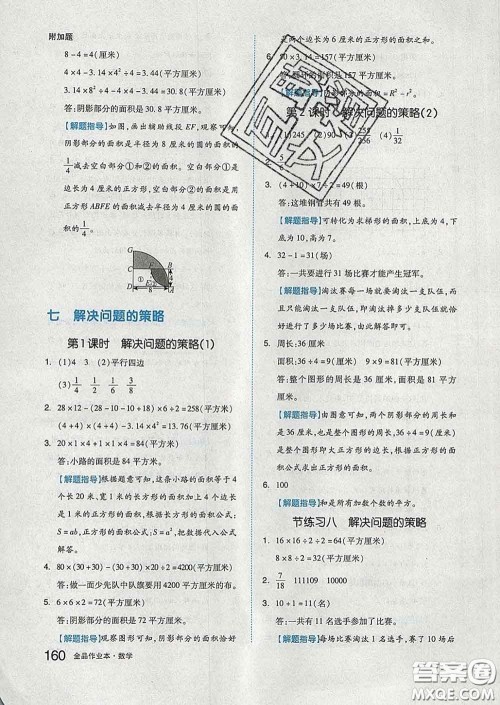 附加题
8-4=4(厘米)
4×4-3.14×4²÷4=3.44(平方厘米)
3.14×8²÷4-4×4-3.44=30.8(平方厘米)
答:阴影部分的面积是 30.8 平方厘米。
【解题指导】如图,画出辅助线段 EF,观察可知,
阴影部分的面积是半径为 8 厘米的圆的面积的
1/4 减去空白部分①和空白部分②的面积,也是用
正方形 ABFE 的面积减去半径为 4 厘米的圆的面
积的 1/4。
七 解决问题的策略
第1课时 解决问题的策略(1)
1. (1)4 3 (2)平行四边
(3) 1/4 1/2 1/4 3/8
2. 28×12-(28-10)×(18-10+6)÷2=258(平方厘米)
(4+4)×(4+4)-3.14×4²=13.76(平方厘米)
3. 20×1×4+1×1×4=84(平方米)
答:小路的面积是 84 平方米。
【解题指导】根据题意可知,这条小路的面积等于 4
个长 20 米、宽 1 米的长方形的面积加上 4 个边长
是 1 米的正方形的面积,长方形的面积公式:
S=ab,正方形的面积公式:S=a²,把数据代入公式
解答。
4. 80×(30+30)-(30+30)×20÷2=4200(平方厘米)
答:做一面少先队中队旗要用 4200 平方厘米的布。
5. 6×6×2=72(平方厘米)
答:阴影部分的面积是 72 平方厘米。
【解题指导】观察图形可知,阴影部分的面积等于
160 全品作业本·数学
是两个边长为 6 厘米的正方形的面积之和。
6.
答:
【解题指导】
第2课时 解决问题的策略(2)
1. (1)245 (2)90 (3) 255/256 (4) 1/32
2. 5/6
3. (4+10)×7÷2=49(根)
答:这堆钢管共有 49 根。
【解题指导】可转化为求梯形的面积,上底为 4,下
底为 10,高为 7。
4. 32-1=31(场)
答:一共要进行 31 场比赛才能产生冠军。
【解题指导】淘汰赛每一场就要淘汰一支队伍,而
且只能淘汰一支队伍,即淘汰掉多少支队伍就恰
好进行了多少场比赛。
5. 周长:36 厘米
面积:9÷1/4=36(厘米) 9×9=81(平方厘米)
答:整个图形的周长是 36 厘米,面积是 81 平方
厘米。
【解题指导】由图意可知,两个阴影部分的周长和
是 36 厘米,也就是正方形的周长是 36 厘米,根据
正方形的周长公式求出正方形的边长,进而求出
面积。
6. 100
【解题指导】和是所有加数个数的平方。
节练习八 解决问题的策略
1. 16×16÷2÷2=64(平方厘米)
8×8÷2=32(平方厘米)
2. 7/18 111109 40000
3. 10+1=11(名)
答:一共有 11 名选手参加了比赛。
【解题指导】每场比赛淘汰 1 名选手,赛了 10 场后
答案圈
MXQE.COM